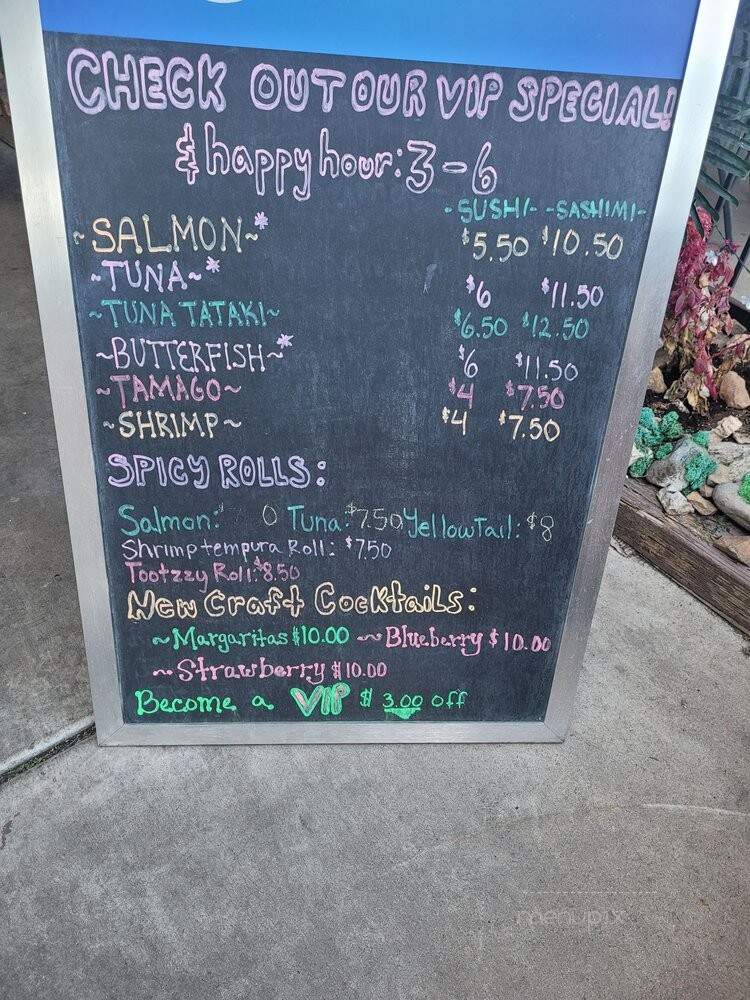 CHECK OUT OUR VIP SPECIAL!
& happy hour: 3-6
-SUSHI- -SASHIMI-
~SALMON~* $5.50 $10.50
~TUNA~* $6 $11.50
~TUNA TATAKI~ $6.50 $12.50
~BUTTERFISH~* $6 $11.50
~TAMAGO~ $4 $7.50
~SHRIMP~ $4 $7.50
SPICY ROLLS:
Salmon: Tuna: $7.50 YellowTail: $8
Shrimp tempura Roll: $7.50
Tootzzy Roll: $8.50
New Craft Cocktails:
~Margaritas $10.00 ~Blueberry $10.00
~Strawberry $10.00
Become a VIP $ 3.00 off
menupix